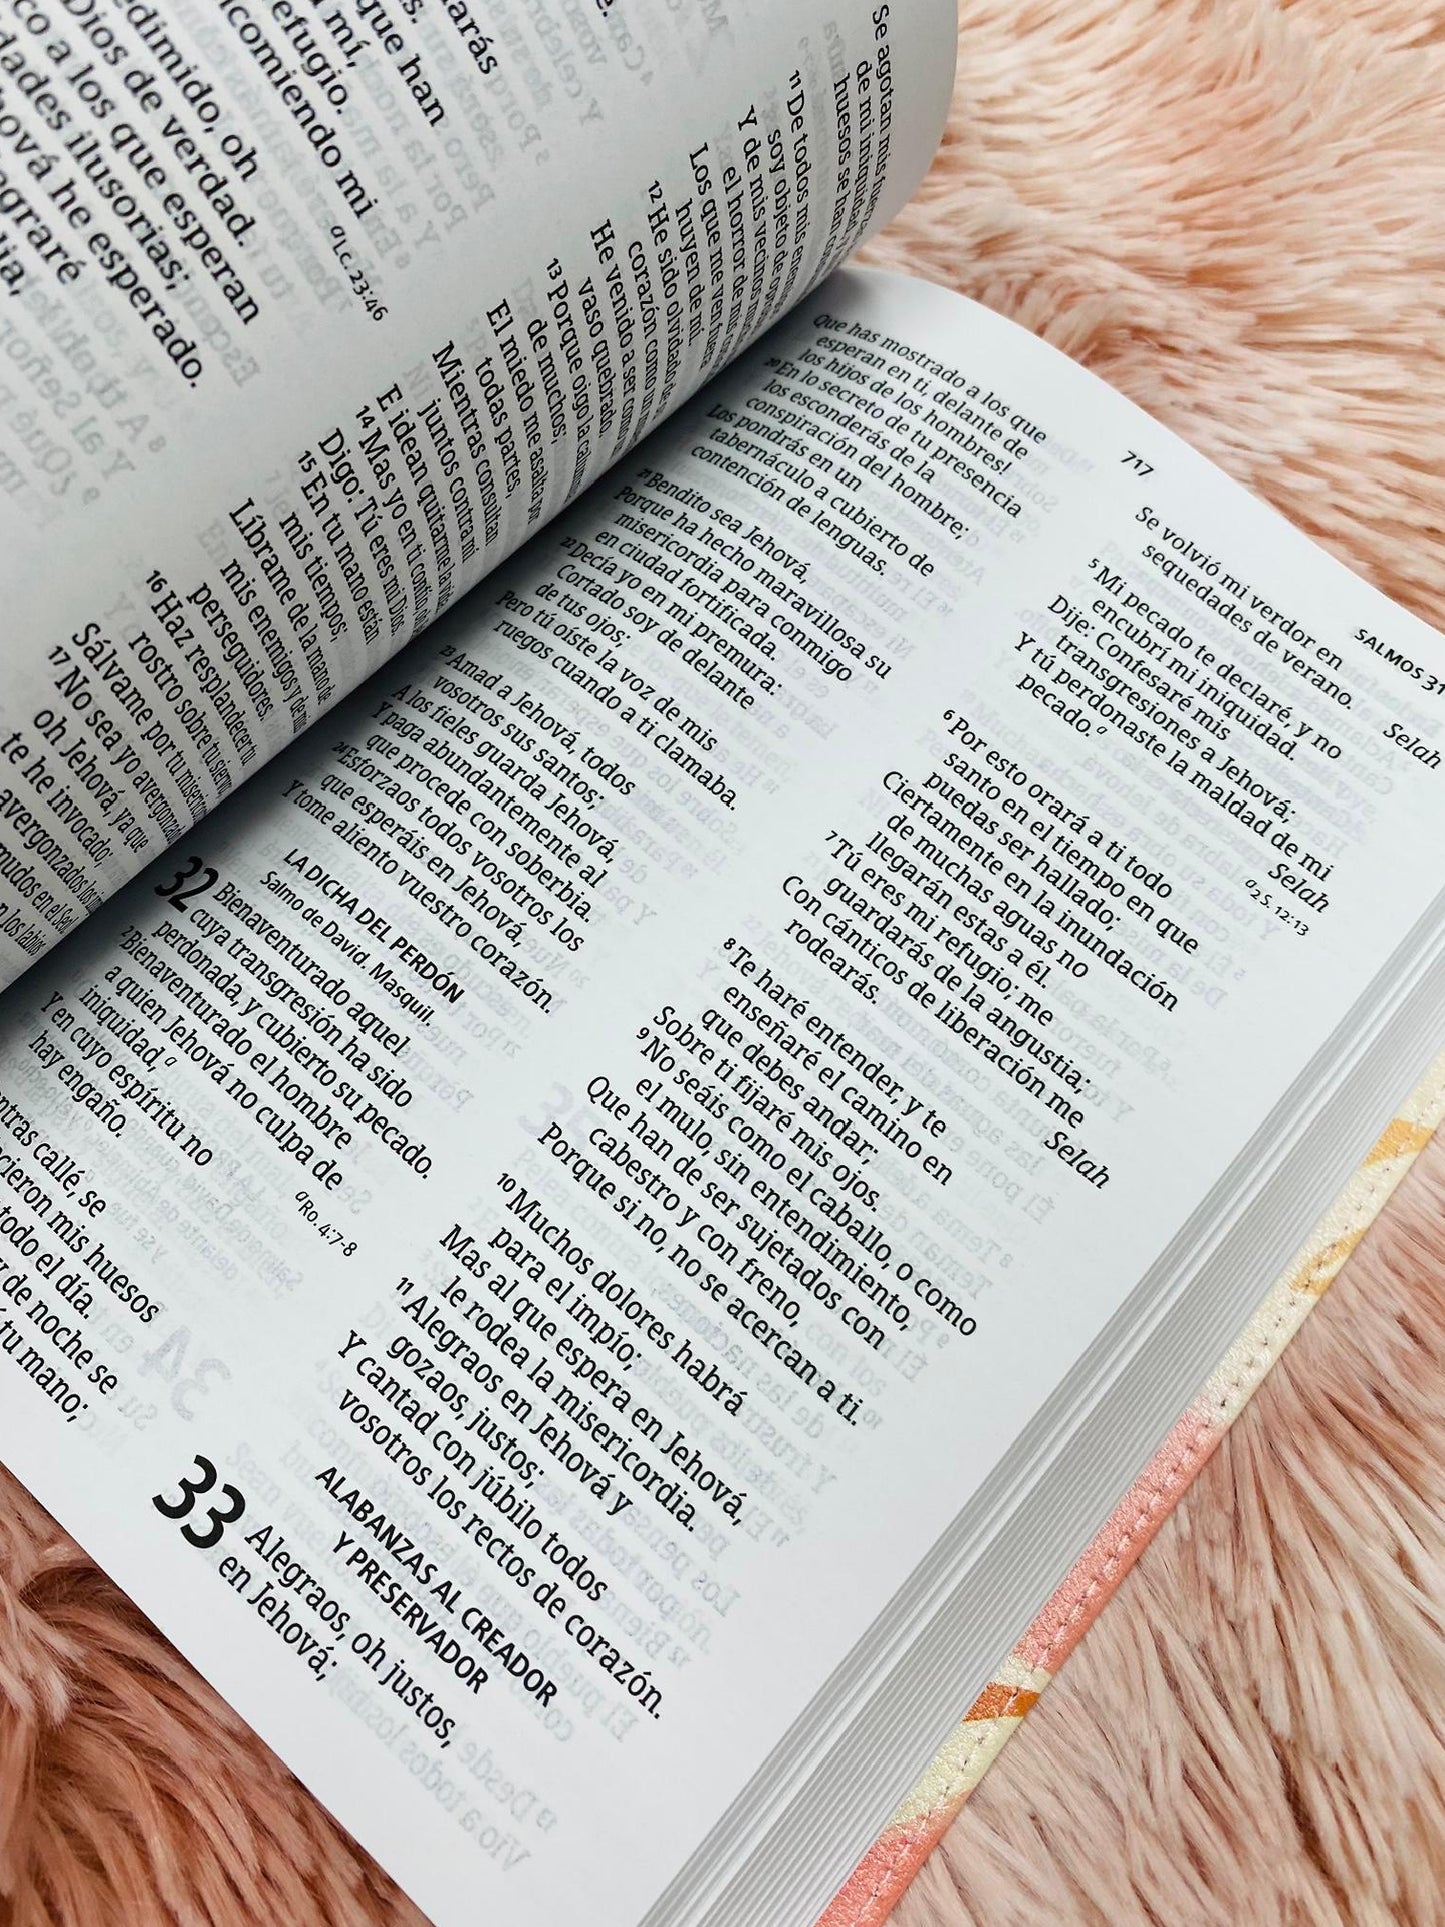 arás
que han
mí,
refugio.
comiendo mi
edimido, oh
Dios de verdad.
co a los que esperan
dades ilusorias;
hová he esperado.
graré
aLc. 23:46
Se agotan mis
de mi iniquidad,
huesos se han
11 De todos mis
soy objeto de
Y de mis vecinos
el horror de mis
Los que me ven fuera
huyen de mí.
12 He sido olvidado de
corazón como un
He venido a ser como
vaso quebrado.
13 Porque oigo la
de muchos;
El miedo me asalta por
todas partes,
Mientras consultan
juntos contra mí
E idean quitarme la vida.
14 Mas yo en ti confío, oh
Digo: Tú eres mi Dios.
15 En tu mano están
mis tiempos;
Líbrame de la mano de
mis enemigos y de mis
perseguidores.
16 Haz resplandecer tu
rostro sobre tu siervo;
Sálvame por tu misericordia.
17 No sea yo avergonzado,
oh Jehová, ya que
te he invocado;
avergonzados los
mudos en el Seol.
n los labios
717
SALMOS 31
Que has mostrado a los que
esperan en ti, delante de
los hijos de los hombres!
20 En lo secreto de tu presencia
los esconderás de la
conspiración del hombre;
Los pondrás en un
tabernáculo a cubierto de
contención de lenguas.
21 Bendito sea Jehová,
Porque ha hecho maravillosa su
misericordia para conmigo
en ciudad fortificada.
22 Decía yo en mi premura:
Cortado soy de delante
de tus ojos;
Pero tú oíste la voz de mis
ruegos cuando a ti clamaba.
23 Amad a Jehová, todos
vosotros sus santos;
A los fieles guarda Jehová,
Y paga abundantemente al
que procede con soberbia.
24 Esforzaos todos vosotros los
que esperáis en Jehová,
Y tome aliento vuestro corazón.
LA DICHA DEL PERDÓN
Salmo de David. Masquil.
32 Bienaventurado aquel
cuya transgresión ha sido
perdonada, y cubierto su pecado.
2 Bienaventurado el hombre
a quien Jehová no culpa de
iniquidad,a
Y en cuyo espíritu no
hay engaño.
aRo. 4:7-8
ntras callé, se
cieron mis huesos
todo el día.
y de noche se
tu mano;
Se volvió mi verdor en
sequedades de verano.
Selah
5 Mi pecado te declaré, y no
encubrí mi iniquidad.
Dije: Confesaré mis
transgresiones a Jehová;
Y tú perdonaste la maldad de mi
pecado.a
Selah
a2 S. 12:13
6 Por esto orará a ti todo
santo en el tiempo en que
puedas ser hallado;
Ciertamente en la inundación
de muchas aguas no
llegarán estas a él.
7 Tú eres mi refugio; me
guardarás de la angustia;
Con cánticos de liberación me
rodearás.
Selah
8 Te haré entender, y te
enseñaré el camino en
que debes andar;
Sobre ti fijaré mis ojos.
9 No seáis como el caballo, o como
el mulo, sin entendimiento,
Que han de ser sujetados con
cabestro y con freno,
Porque si no, no se acercan a ti.
10 Muchos dolores habrá
para el impío;
Mas al que espera en Jehová,
le rodea la misericordia.
11 Alegraos en Jehová y
gozaos, justos;
Y cantad con júbilo todos
vosotros los rectos de corazón.
ALABANZAS AL CREADOR
Y PRESERVADOR
33 Alegraos, oh justos,
en Jehová;